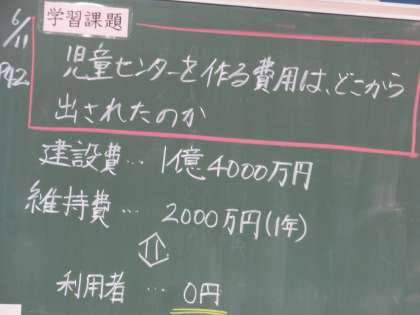 6/11
学習課題
P42
児童センターを作る費用は、どこから
出されたのか
建設費…1億4000万円
維持費… 2000万円(1年)
⇕
利用者 … 0円